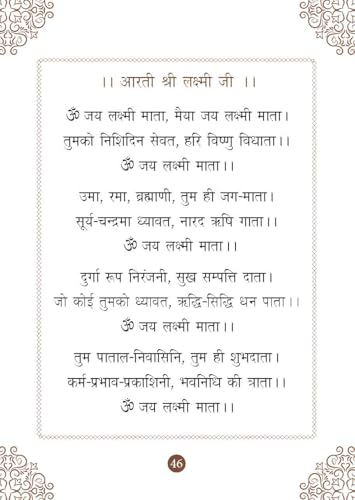 ।। आरती श्री लक्ष्मी जी ।।
ॐ जय लक्ष्मी माता, मैया जय लक्ष्मी माता।
तुमको निशिदिन सेवत, हरि विष्णु विधाता।।
ॐ जय लक्ष्मी माता।।
उमा, रमा, ब्रह्माणी, तुम ही जग-माता।
सूर्य-चन्द्रमा ध्यावत, नारद ऋषि गाता।।
ॐ जय लक्ष्मी माता।।
दुर्गा रूप निरंजनी, सुख सम्पत्ति दाता।
जो कोई तुमको ध्यावत, ऋद्धि-सिद्धि धन पाता।।
ॐ जय लक्ष्मी माता।।
तुम पाताल-निवासिनि, तुम ही शुभदाता।
कर्म-प्रभाव-प्रकाशिनी, भवनिधि की त्राता।।
ॐ जय लक्ष्मी माता।।
46